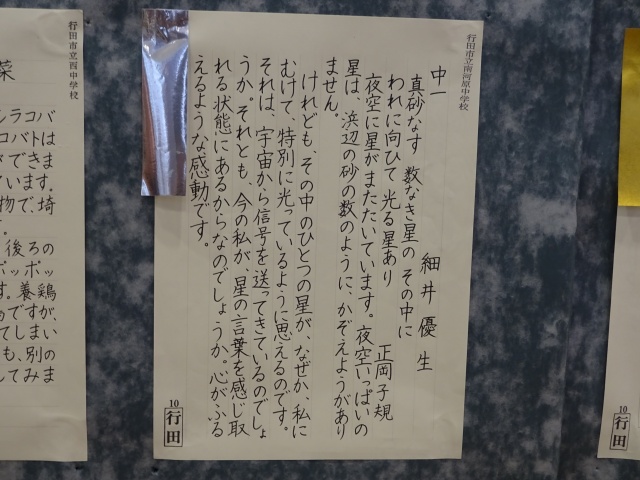 行田市立南河原中学校
中一
細井優生
真砂なす 数なき星の その中に
われに向ひて 光る星あり
正岡子規
夜空に星がまたたいています。夜空いっぱいの
星は、浜辺の砂の数のように、かぞえようがあり
ません。
けれども、その中のひとつの星が、なぜか、私に
むけて、特別に光っているように思えるのです。
それは、宇宙から信号を送ってきているのでしょ
うか。それとも、今の私が、星の言葉を感じ取
れる状態にあるからなのでしょうか。心がふる
えるような感動です。
10
行田
行田市立西中学校
菜
シラコバ
コバトは
できま
います。
物で、埼
後ろの
ポッポッ
す。養鶏
ですが、
てしまい
も、別の
してみま
10
行田